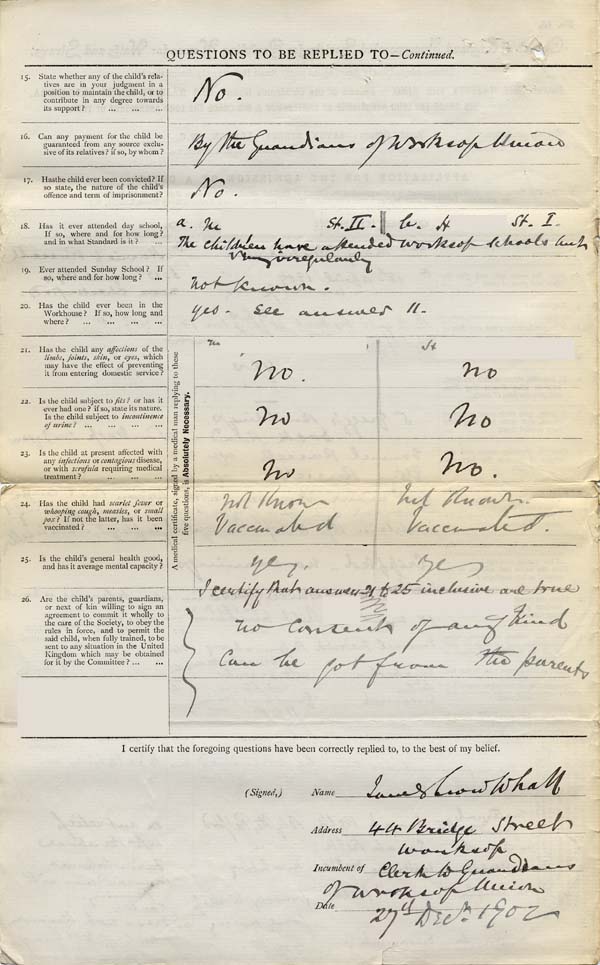 QUESTIONS TO BE REPLIED TO—Continued.
15. State whether any of the child's rela-
tives are in your judgment in a
position to maintain the child, or to
contribute in any degree towards
its support? ... ... ...
No.
16. Can any payment for the child be
guaranteed from any source exclu-
sive of its relatives? if so, by whom?
By the Guardians of Worksop Union
17. Has the child ever been convicted? If
so state, the nature of the child's
offence and term of imprisonment?
No.
18. Has it ever attended day school,
If so, where and for how long?
and in what Standard is it? ...
a. M St. II. b. H St. I.
The children have attended Worksop schools but
very irregularly
19. Ever attended Sunday School? If
so, where and for how long? ...
not known.
20. Has the child ever been in the
Workhouse? If so, how long and
where? ... ... ... ...
yes. see answer 11.
A medical certificate, signed by a medical man replying to these
five questions, is Absolutely Necessary.
M H
21. Has the child any affections of the
limbs, joints, skin, or eyes, which
may have the effect of preventing
it from entering domestic service?
No. No
22. Is the child subject to fits? or has it
ever had one? if so, state its nature.
Is the child subject to incontinence
of urine? ... ... ... ...
No No
23. Is the child at present affected with
any infectious or contagious disease,
or with scrofula requiring medical
treatment? ... ... ... ...
No No.
24. Has the child had scarlet fever or
whooping cough, measles, or small
pox? If not the latter, has it been
vaccinated? ... ... ...
Not Known Not Known.
Vaccinated Vaccinated.
25. Is the child's general health good,
and has it average mental capacity?
yes. Yes
I certify that answers 21 to 25 inclusive are true
26. Are the child's parents, guardians,
or next of kin willing to sign an
agreement to commit it wholly to
the care of the Society, to obey the
rules in force, and to permit the
said child, when fully trained, to be
sent to any situation in the United
Kingdom which may be obtained
for it by the Committee? ... ...
no consent of any kind
can be got from the parents
I certify that the foregoing questions have been correctly replied to, to the best of my belief.
(Signed,) Name Whall
Address 44 Bridge Street
Worksop
Incumbent of Clerk to Guardians
of Worksop Union
Date 27th Decr. 1902